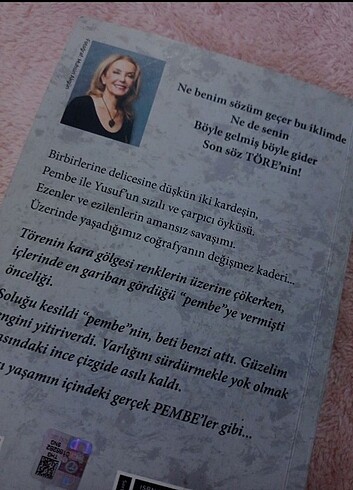 Ne benim sözüm geçer bu iklimde
Ne de senin
Böyle gelmiş böyle gider
Son söz TÖRE'nin!
Birbirlerine delicesine düşkün iki kardeşin,
Pembe ile Yusuf'un sızılı ve çarpıcı öyküsü.
Ezenler ve ezilenlerin amansız savaşımı.
Üzerinde yaşadığımız coğrafyanın değişmez kaderi...
Törenin kara gölgesi renklerin üzerine çökerken,
içlerinde en gariban gördüğü “pembe”ye vermişti
önceliği.
Soluğu kesildi “pembe”nin, beti benzi attı. Güzelim
engini yitiriverdi. Varlığını sürdürmekle yok olmak
asındaki ince çizgide asılı kaldı.
yaşamın içindeki gerçek PEMBE'ler gibi...